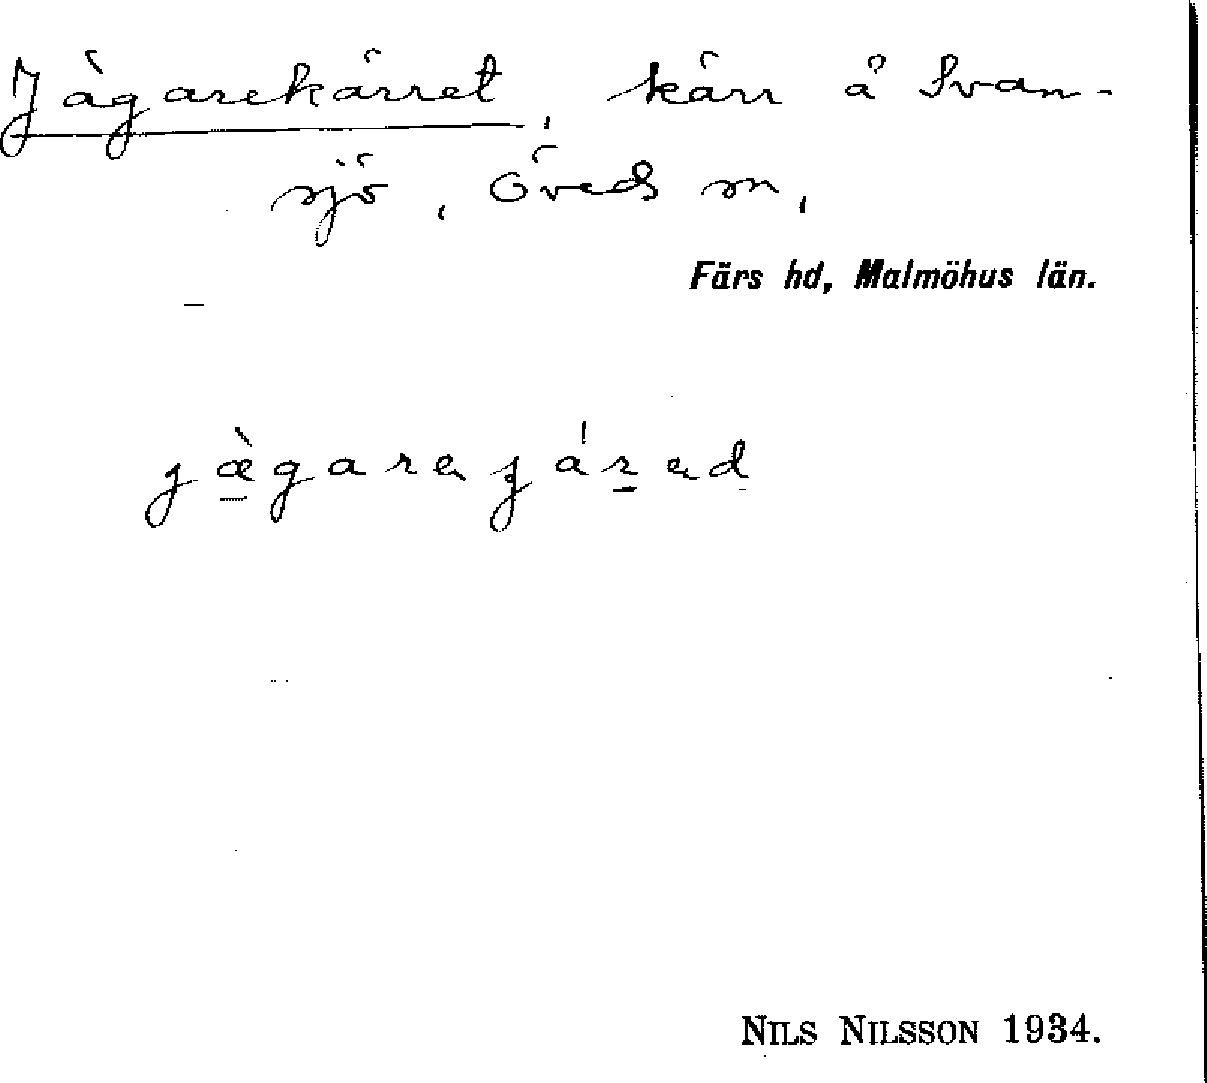 Jägarekärret, kärr å Svan-
sjö, Öveds sn,
Färs hd, Malmöhus län.
NILS NILSSON 1934.